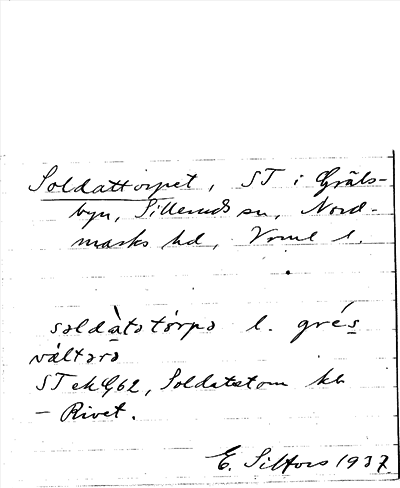 Soldattorpet, ST i Gräls-
byn, Sillerud sn, Nord-
marks hd, Vrml l.
soldàtstórpə l. grés
váltərə
ST ek G62, Soldatstom kb
– Rivet.
E. Silfors 1937